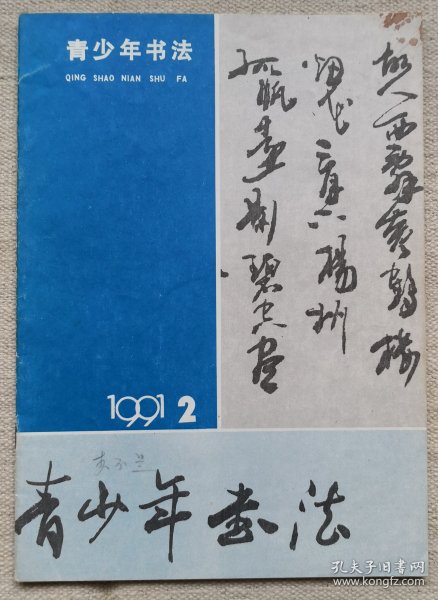 青少年书法
QING SHAO NIAN SHU FA
故人西辞黄鹤楼
烟花三月下扬州
孤帆远影碧空尽
1991 2
青少年书法
孔夫子旧书网
www.kongfz.com